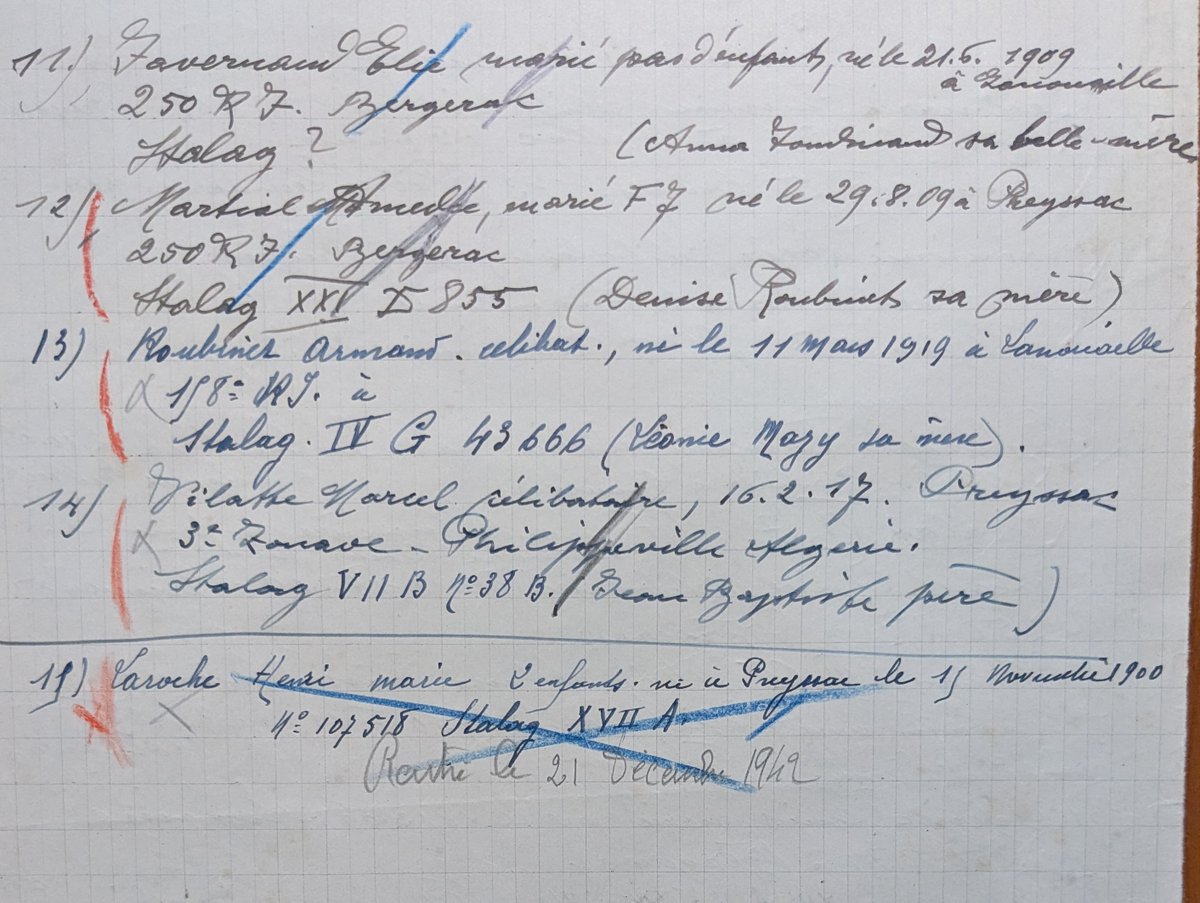 11) Favernaud Elie marié pas d'enfant, né le 21.6. 1909
à Lanouaille
250 R I. Bergerac
Stalag ? (Anna sa belle-mère
12) Martial Amedée, marié né le 29.8.09 à Preyssac
250 R I. Bergerac
Stalag XXI D 855 (Denise Roubinet sa mère)
13) Roubinet Armand. célibat., né le 11 Mars 1919 à Lanouaille
158e RI. à
Stalag. IV G 43666 (Léonie Mazy sa mère).
14) Vilatte Marcel célibataire, 16.2.17. Preyssac
3e Zouave - Philippeville Algerie.
Stalag VII B n° 38 B. Jean Baptiste père)
15) Laroche Henri marie 2 enfants. né à Preyssac le 15 Novembre 1900
N° 107518 Stalag XVII A.
Rentré le 21 Décembre 1942